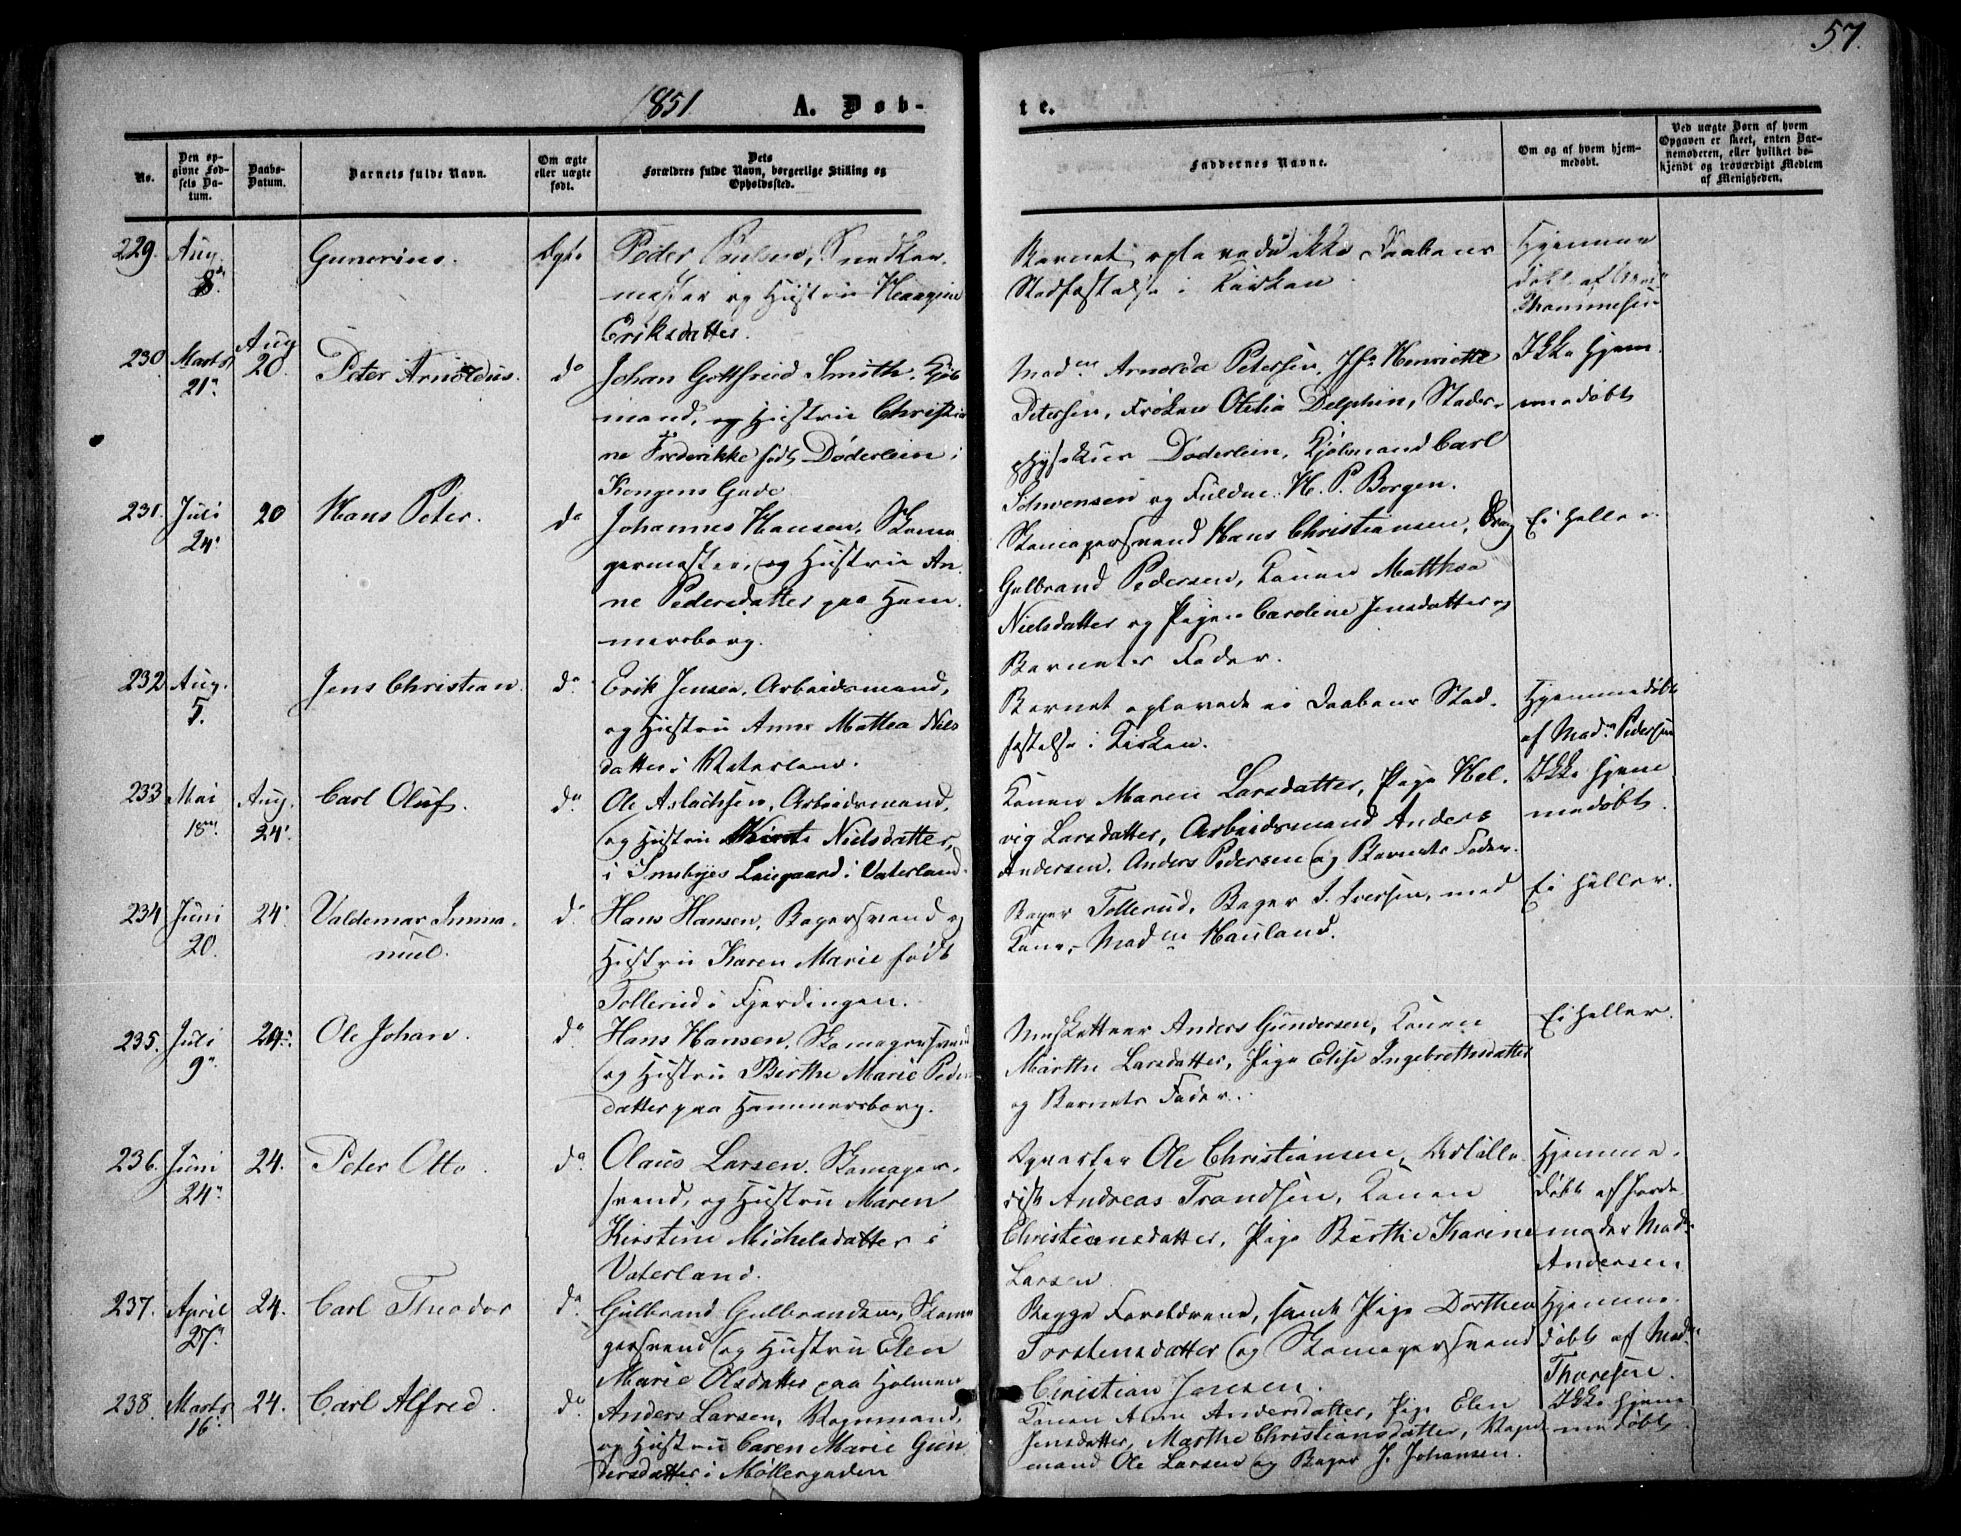 57.
1851
A. Døb-
te.
No.
Den op-
givne Fød-
sels Da-
tum.
Daabs-
Datum.
Barnets fulde Navn.
Om ægte
eller uægte
født.
Dets
Forældres fulde Navn, borgerlige Stilling og
Opholdssted.
Faddernes Navne.
Om og af hvem hjem-
medøbt.
Ved uægte Børn af hvem
Opgaven er skeet, enten Bar-
nemoderen, eller hvilket be-
kjendt og troværdigt Medlem
af Menigheden.
229. Aug. 8de
Gunerius.
Ægte
Peder Poulsen, Snedker-
mester og Hustru
Eriksdatter.
Barnet oplevede ikke Daabens
Stadfæstelse i Kirken.
Hjemme
døbt af
Thommesen
230. Marts 21de
Aug 20.
Peter Arnoldus.
do
Johan Gottfried Smith, Kjøb-
mand, og Hustru Christia-
ne Frederikke født Døderlein i
Kongens Gade.
Madm Arnolda Petersen, Jfr Henriette
Petersen, Frøken Otilia Delphin, Stads-
physikus Døderlein, Kjøbmand Carl
Schwensen og Fuldm. H. P. Borgen.
Ikke hjem-
medøbt
231. Juli 24.
20
Hans Peter.
do
Johannes Hansen, Skoma-
germester, og Hustru An-
ne Pedersdatter paa Ham-
mersborg.
Skomagersvend Hans Christiansen,
Gulbrand Pedersen, Konen Matthea
Nielsdatter og Pigen Caroline Jensdatter og
Barnets Fader.
Ei heller.
232 Aug. 5.
Jens Christian.
do
Erik Jensen, Arbeidsmand,
og Hustru Anne Mathea Niels-
datter i Vaterland.
Barnet oplevede ei Daabens Stad-
fæstelse i Kirken.
Hjemmedøbt
af Madm Pedersen
233 Mai 18de
Aug. 24.
Carl Oluf.
do
Ole Aslachsen, Arbeidsmand,
og Hustru Kirste Nielsdatter,
i Smebyes Leiegaard i Vaterland.
Konen Maren Larsdatter, Pige Hel-
vig Larsdatter, Arbeidsmand Anders
Andersen, Anders Pedersen og Barnets Fader.
Ikke hjem-
medøbt.
234 Juni 20.
24.
Valdemar Imma-
nuel.
do
Hans Hansen, Bagersvend og
Hustru Karen Marie født
Tollerud i Fjerdingen.
Bager Tollerud, Bager I. Iversen, med
Kone, Madm Hauland.
Ei heller.
235. Juli 9de
24.
Ole Johan.
do
Hans Hansen, Skomagersvend
og Hustru Birthe Marie Peders-
datter paa Hammersborg.
Musketteer Anders Gundersen, Konen
Marthe Larsdatter, Pige Elise Ingebrethsdatter
og Barnets Fader.
Ei heller.
236. Juni 24de
24.
Peter Otto.
do
Olaus Larsen, Skomager-
svend, og Hustru Maren
Kirstine Michelsdatter i
Vaterland.
Ole Christiansen, Artille-
rist Andreas Trondsen, Konen
Christiansdatter, Pige Berthe Karine
Larsen.
Hjemme-
døbt af Jorde-
moder Madm
Andersen
237. April 27de
24.
Carl Theodor
do
Gulbrand Gulbrandsen, Skoma-
gersvend og Hustru Elen
Marie Olsdatter paa Holmen
Begge Forældrene, samt Pige Dorthea
Torstensdatter og Skomagersvend
Christian Jensen.
Hjemme-
døbt af Madm
Thoresen
238. Marts 16.
24.
Carl Alfred.
do
Anders Larsen, Vognmand,
og Hustru Caren Marie Gun-
dersdatter i Møllergaden
Konen Anne Andersdatter, Pige Elen
Jensdatter, Marthe Christiansdatter, Vogn-
mand Ole Larsen og Bager J. Johansen.
Ikke hjem-
medøbt